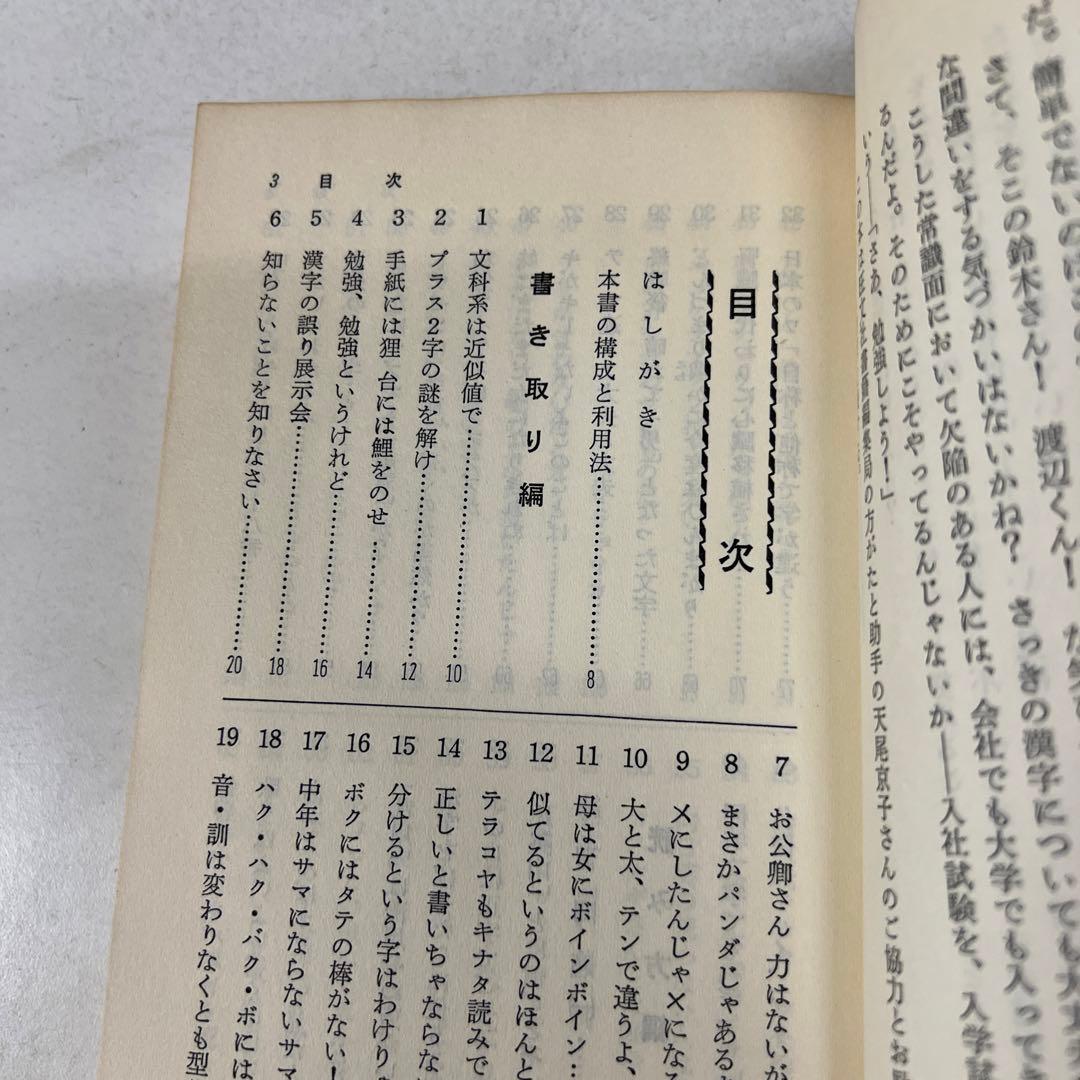 だ。簡単でないのは
さて、そこの鈴木さん！　渡辺くん！
な間違いをする気づかいはないかね？　さっきの漢字についても大丈夫
こうした常識面において欠陥のある人には、会社でも大学でも入って
るんだよ。そのためにこそやってるんじゃないか――入社試験を、入学試
いう――「さあ、勉強しよう！」
編集局の方がたと助手の天尾京子さんのご協力とお
目　次
はしがき
本書の構成と利用法……8
書き取り編
1　文科系は近似値で……10
2　プラス2字の謎を解け……12
3　手紙には狸　台には鯉をのせ……14
4　勉強、勉強というけれど……16
5　漢字の誤り展示会……18
6　知らないことを知りなさい……20
3　目　次
7　お公卿さん　力はないが
8　まさかパンダじゃある
9　×にしたんじゃ×になる
10　大と太、テンで違うよ、
11　母は女にボインボイン…
12　似てるというのはほんと
13　テラコヤもキナタ読みで
14　正しいと書いちゃならな
15　分けるという字はわけり
16　ボクにはタテの棒がない！
17　中年はサマにならないサマ
18　ハク・ハク・バク・ボには
19　音・訓は変わりなくとも型